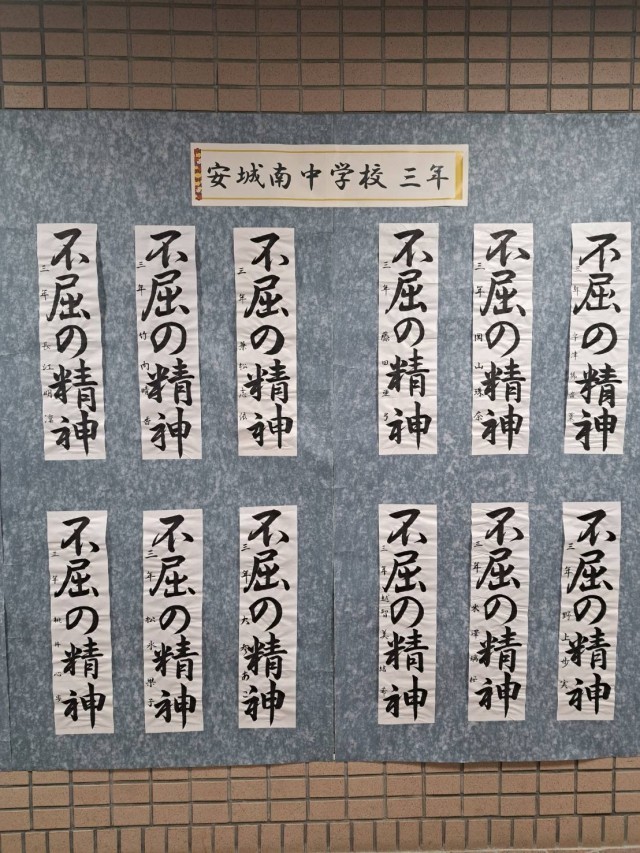 安城南中学校 三年
不屈の精神
三年
不屈の精神
三年 岡山
不屈の精神
三年 藤田
不屈の精神
三年
不屈の精神
三年 竹内
不屈の精神
三年 長江
不屈の精神
三年 野上歩実
不屈の精神
三年 米澤
不屈の精神
三年 越智美
不屈の精神
三年 大
不屈の精神
三年 松永
不屈の精神
三年